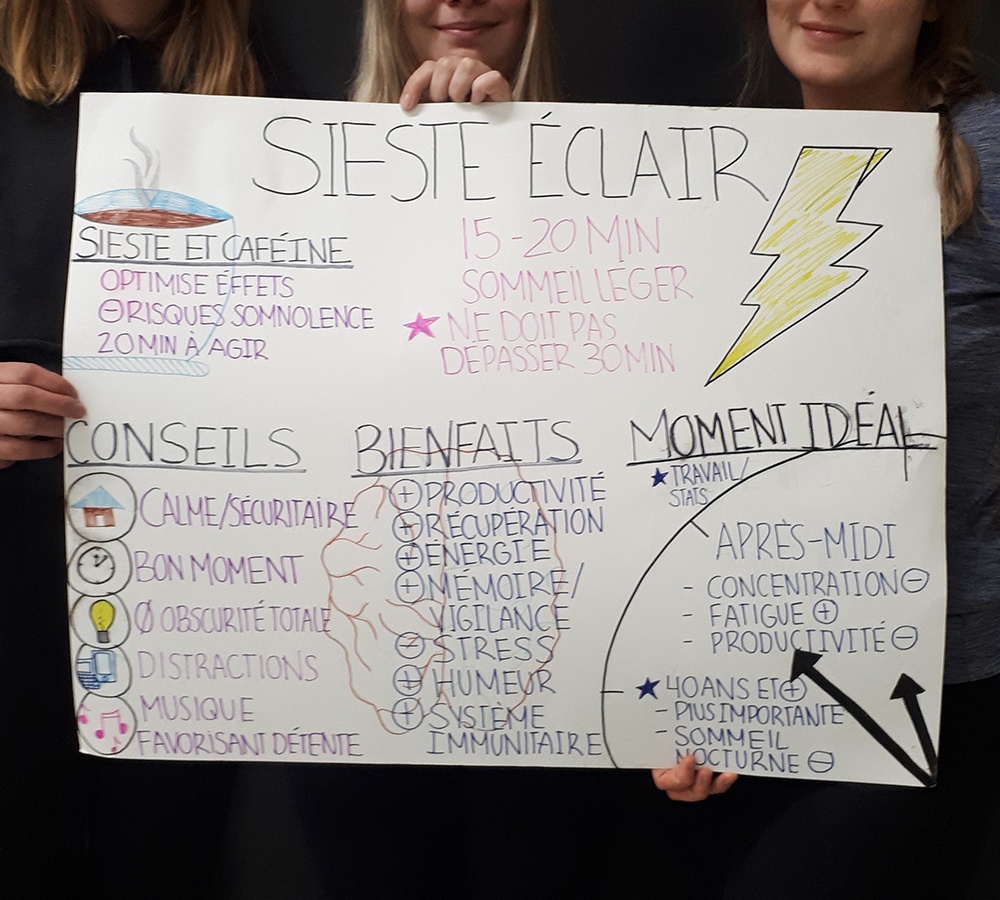 SIESTE ÉCLAIR
SIESTE ET CAFÉINE
OPTIMISE EFFETS
⊖ RISQUES SOMNOLENCE
20 MIN À AGIR
15-20 MIN
SOMMEIL LEGER
★ NE DOIT PAS
DEPASSER 30 MIN
CONSEILS
CALME/SÉCURITAIRE
BON MOMENT
Ø OBSCURITÉ TOTALE
DISTRACTIONS
MUSIQUE
FAVORISANT DÉTENTE
BIENFAITS
⊕ PRODUCTIVITÉ
⊕ RÉCUPÉRATION
⊕ ÉNERGIE
⊕ MÉMOIRE/
VIGILANCE
⊖ STRESS
⊕ HUMEUR
⊕ SYSTÈME
IMMUNITAIRE
MOMENT IDÉAL
★ TRAVAIL/
STATS
APRÈS-MIDI
- CONCENTRATION ⊖
- FATIGUE ⊕
- PRODUCTIVITÉ ⊖
★ 40 ANS ET ⊕
- PLUS IMPORTANTE
- SOMMEIL
NOCTURNE ⊖